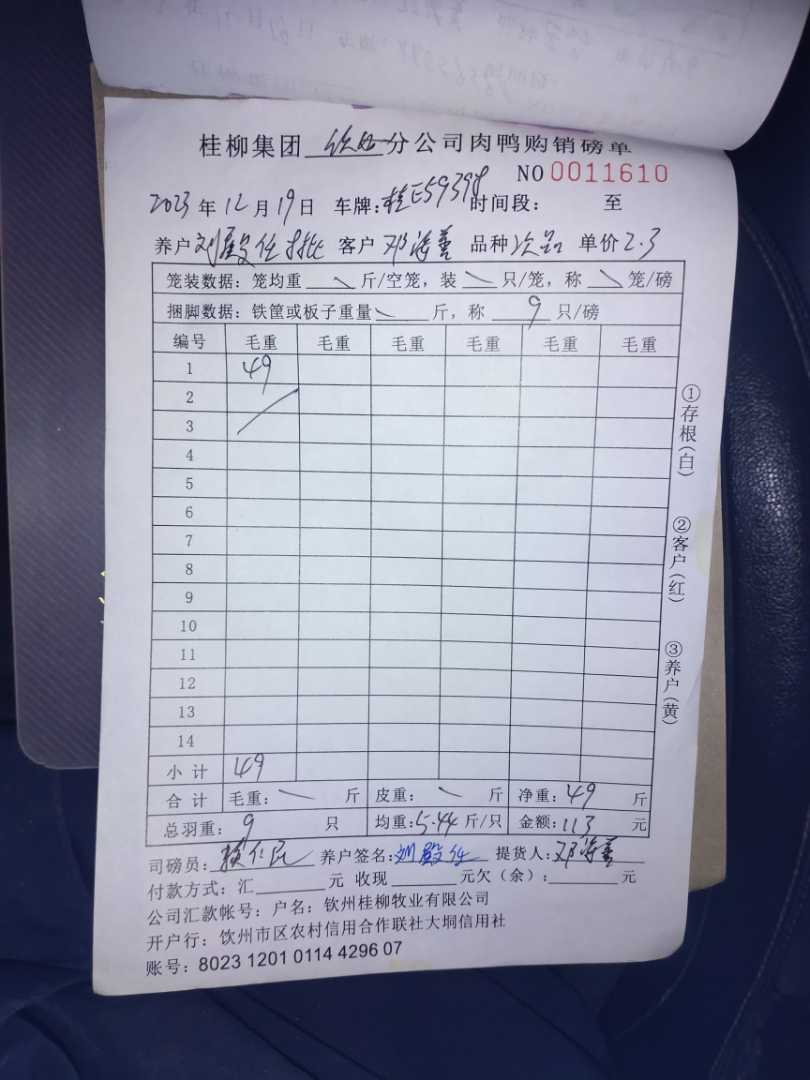 桂柳集团 钦州 分公司肉鸭购销磅单
NO 0011610
2023 年 12 月 19 日 车牌:桂E59398 时间段: 至
养户 刘殿任 客户 邓海善 品种 次品 单价 2.3
笼装数据:笼均重 斤/空笼,装 只/笼,称 笼/磅
捆脚数据:铁筐或板子重量 斤,称 9 只/磅
编号 毛重 毛重 毛重 毛重 毛重 毛重
1 49
2
3
4
5
6
7
8
9
10
11
12
13
14
小计 49
合计 毛重: 斤 皮重: 斤 净重:49 斤
总羽重: 9 只 均重:5.44 斤/只 金额:113 元
司磅员: 仁民 养户签名:刘殿任 提货人:邓海善
付款方式:汇 元 收现 元欠(余): 元
公司汇款帐号:户名:钦州桂柳牧业有限公司
开户行:饮州市区农村信用合作联社大垌信用社
账号:8023 1201 0114 4296 07
①存根(白)
②客户(红)
③养户(黄)